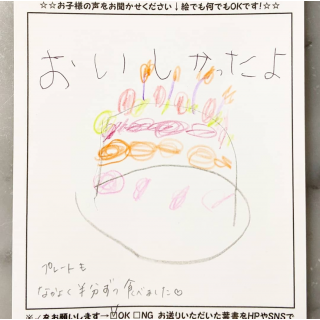 ☆☆お子様の声をお聞かせください↓絵でも何でもOKです!☆☆
おいしかったよ
プレートも
なかよく半分ずつ食べました♡
※✓をお願いします→☑OK □NG お送りいただいた葉書をHPやSNSで